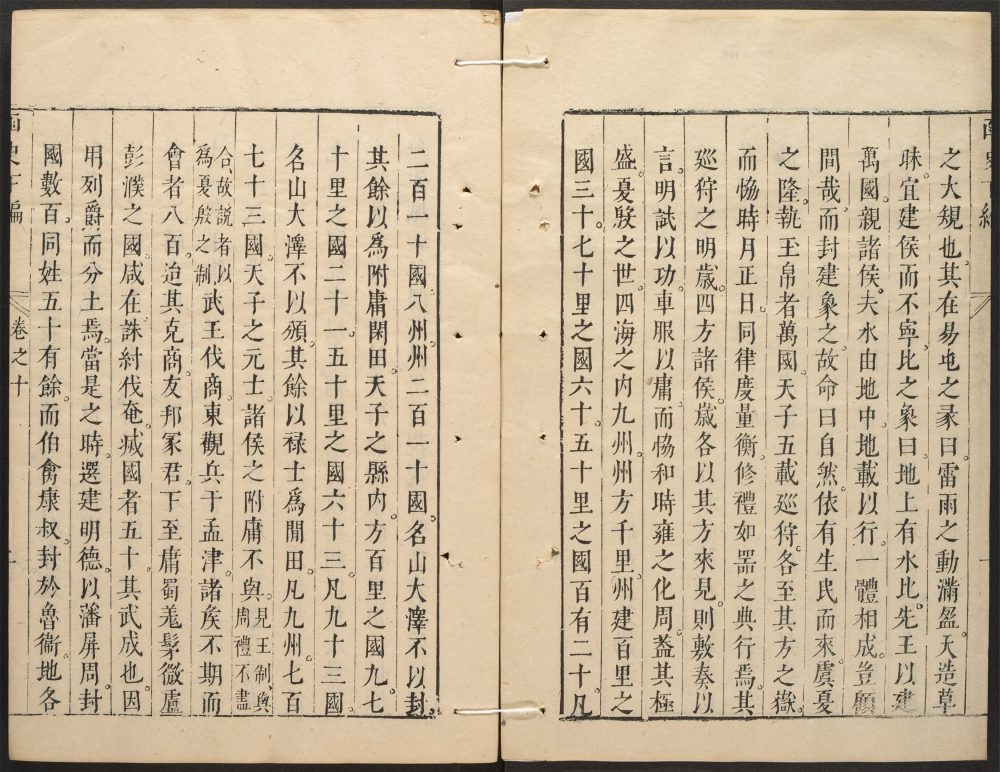 之大規也其在易屯之彖曰雷雨之動滿盈天造草
昧宜建侯而不寧比之象曰地上有水比先王以建
萬國親諸侯夫水由地中地載以行一體相成豈顧
間哉而封建象之故命曰自然依有生民而來虞夏
之隆執玉帛者萬國天子五載巡狩各至其方之嶽
而恊時月正日同律度量衡修禮如器之典行焉其
巡狩之明歲四方諸侯歲各以其方來見則敷奏以
言明試以功車服以庸而恊和時雍之化周葢其極
盛夏殷之世四海之内九州州方千里州建百里之
國三十七十里之國六十五十里之國百有二十凡
二百一十國八州州二百一十國名山大澤不以封
其餘以為附庸閑田天子之縣内方百里之國九七
十里之國二十一五十里之國六十三凡九十三國
名山大澤不以頒其餘以祿士為閒田凡九州七百
七十三國天子之元士諸侯之附庸不與見王制與周禮不盡
合故說者以為夏殷之制武王伐商東觀兵于孟津諸矦不期而
會者八百迨其克商友邦冢君下至庸蜀羗髳微盧
彭濮之國咸在誅紂伐奄烕國者五十其武成也因
用列爵而分土焉當是之時選建明德以藩屏周封
國數百同姓五十有餘而伯禽康叔封於魯衞地各
函史下編
卷之十
一